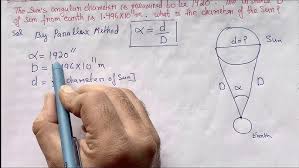 The Sun's angular diameter is measured to be 1920". The distance D
of sun from earth is 1.496×10¹¹ m. what is the diameter of the Sun?
Sol By Parallax Method
α = d/D
α = 1920"
D = 496×10¹¹ m
d = diameter of Sun]
d=?
D
D
α
Earth